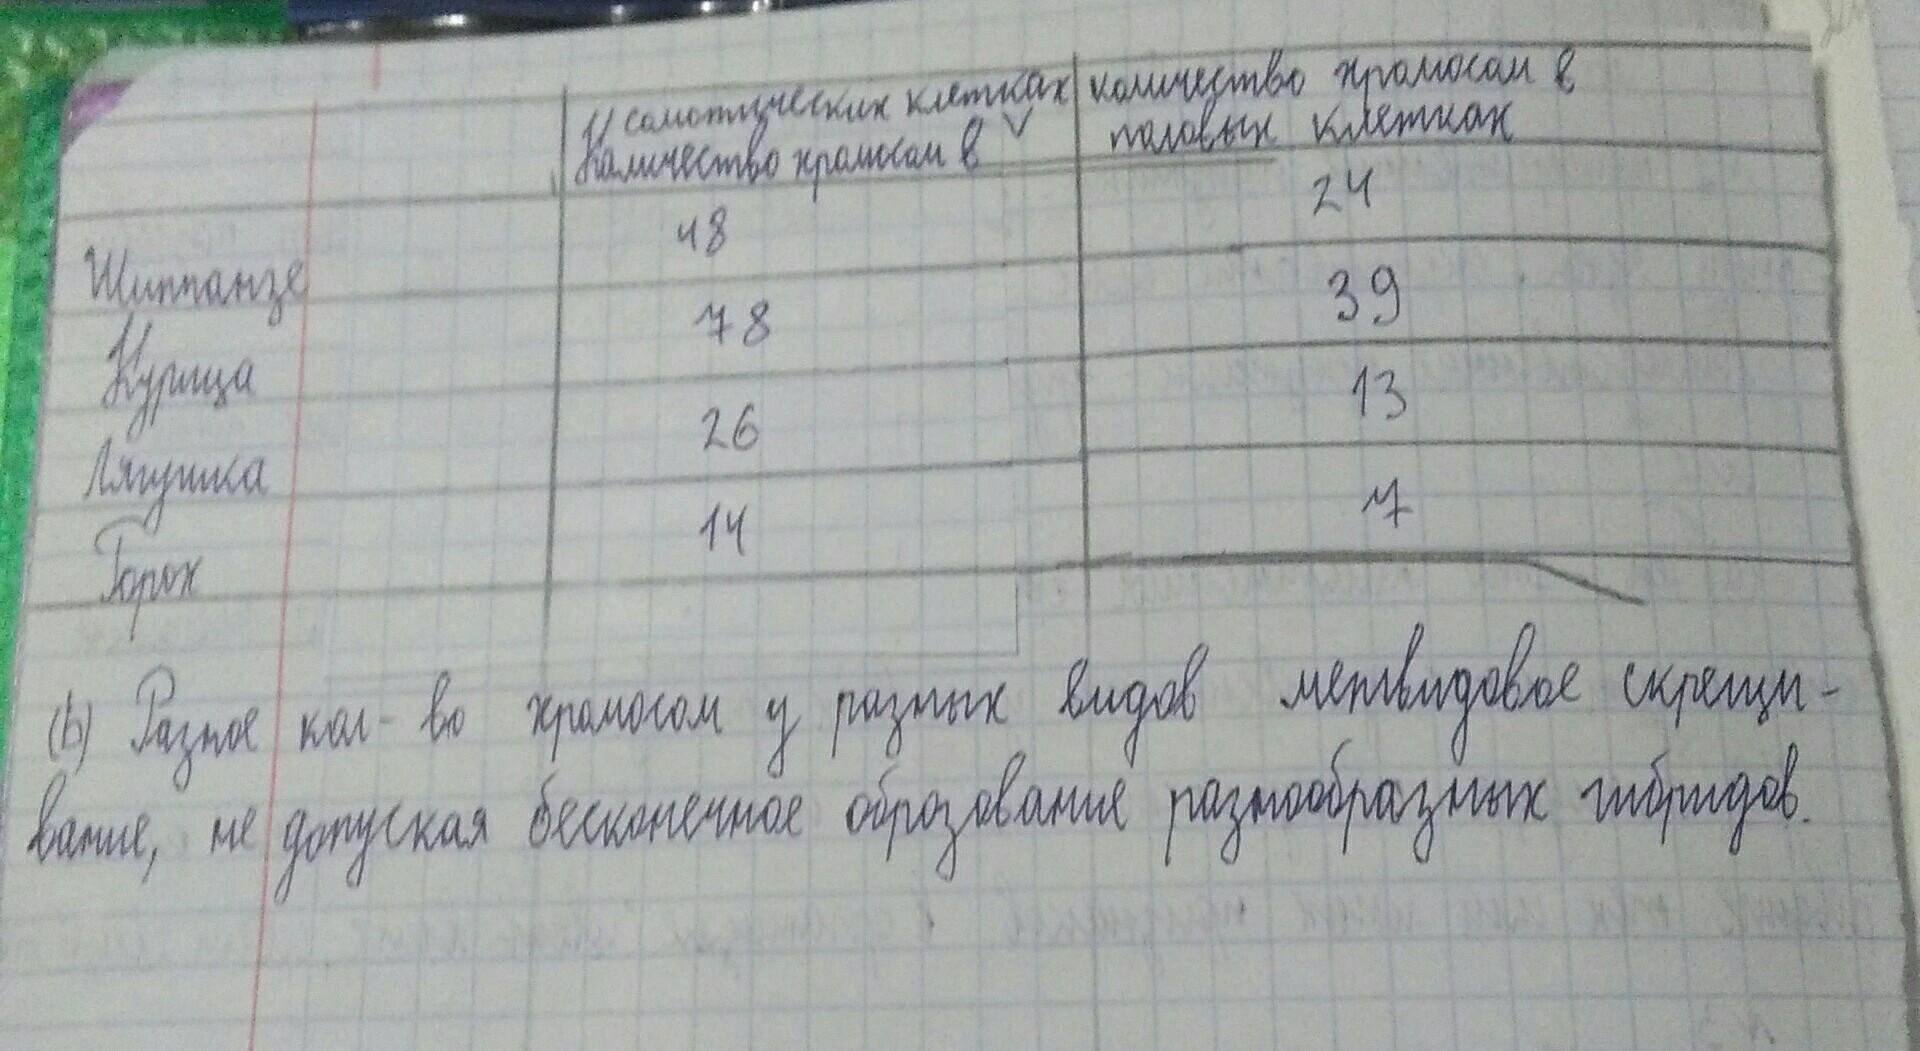 соматических клетках
Количество хромосом в V
количество хромосом в
половых клетках
Шиппанзе 48 24
Курица 78 39
Лягушка 26 13
Горох 14 7
(b) Разное кол-во хромосом у разных видов межвидовое скрещи-
вание, не допуская бесконечное образование разнообразных гибридов.